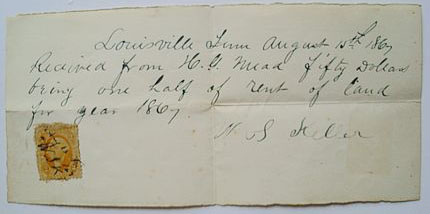 Louisville Tenn August 15th 1867
Received from H. G. Mead Fifty Dollars
being one half of rent of land
for year 1867